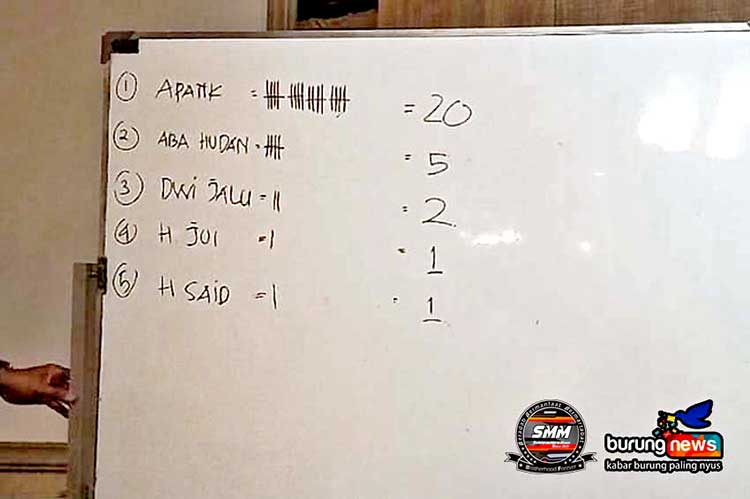 ① APATIK = 卌 卌 卌 卌 = 20
② ABA HUDAN = 卌 = 5
③ DWI JALU = II = 2
④ H JOI = I = 1
⑤ H SAID = I = 1
SMM
Brotherhood Forever
burungnews
kabar burung paling nyus